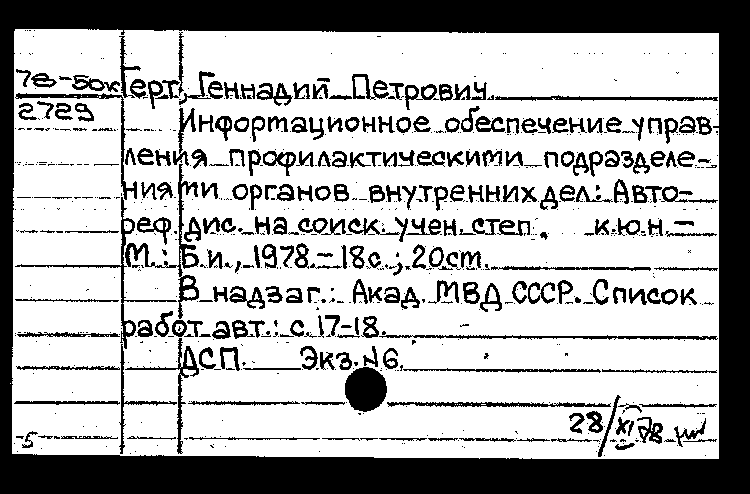 78-5ок Герт, Геннадий Петрович
2729
Информационное обеспечение управ-
ления профилактическими подразделе-
ниями органов внутренних дел: Авто-
реф. дис. на соиск. учен. степ. к.ю.н. –
М.: Б.и., 1978. – 18с.; 20ст.
В надзаг.: Акад. МВД СССР. Список
работ авт.: с. 17-18.
ДСП. Экз. №6.
28/XI 78
5